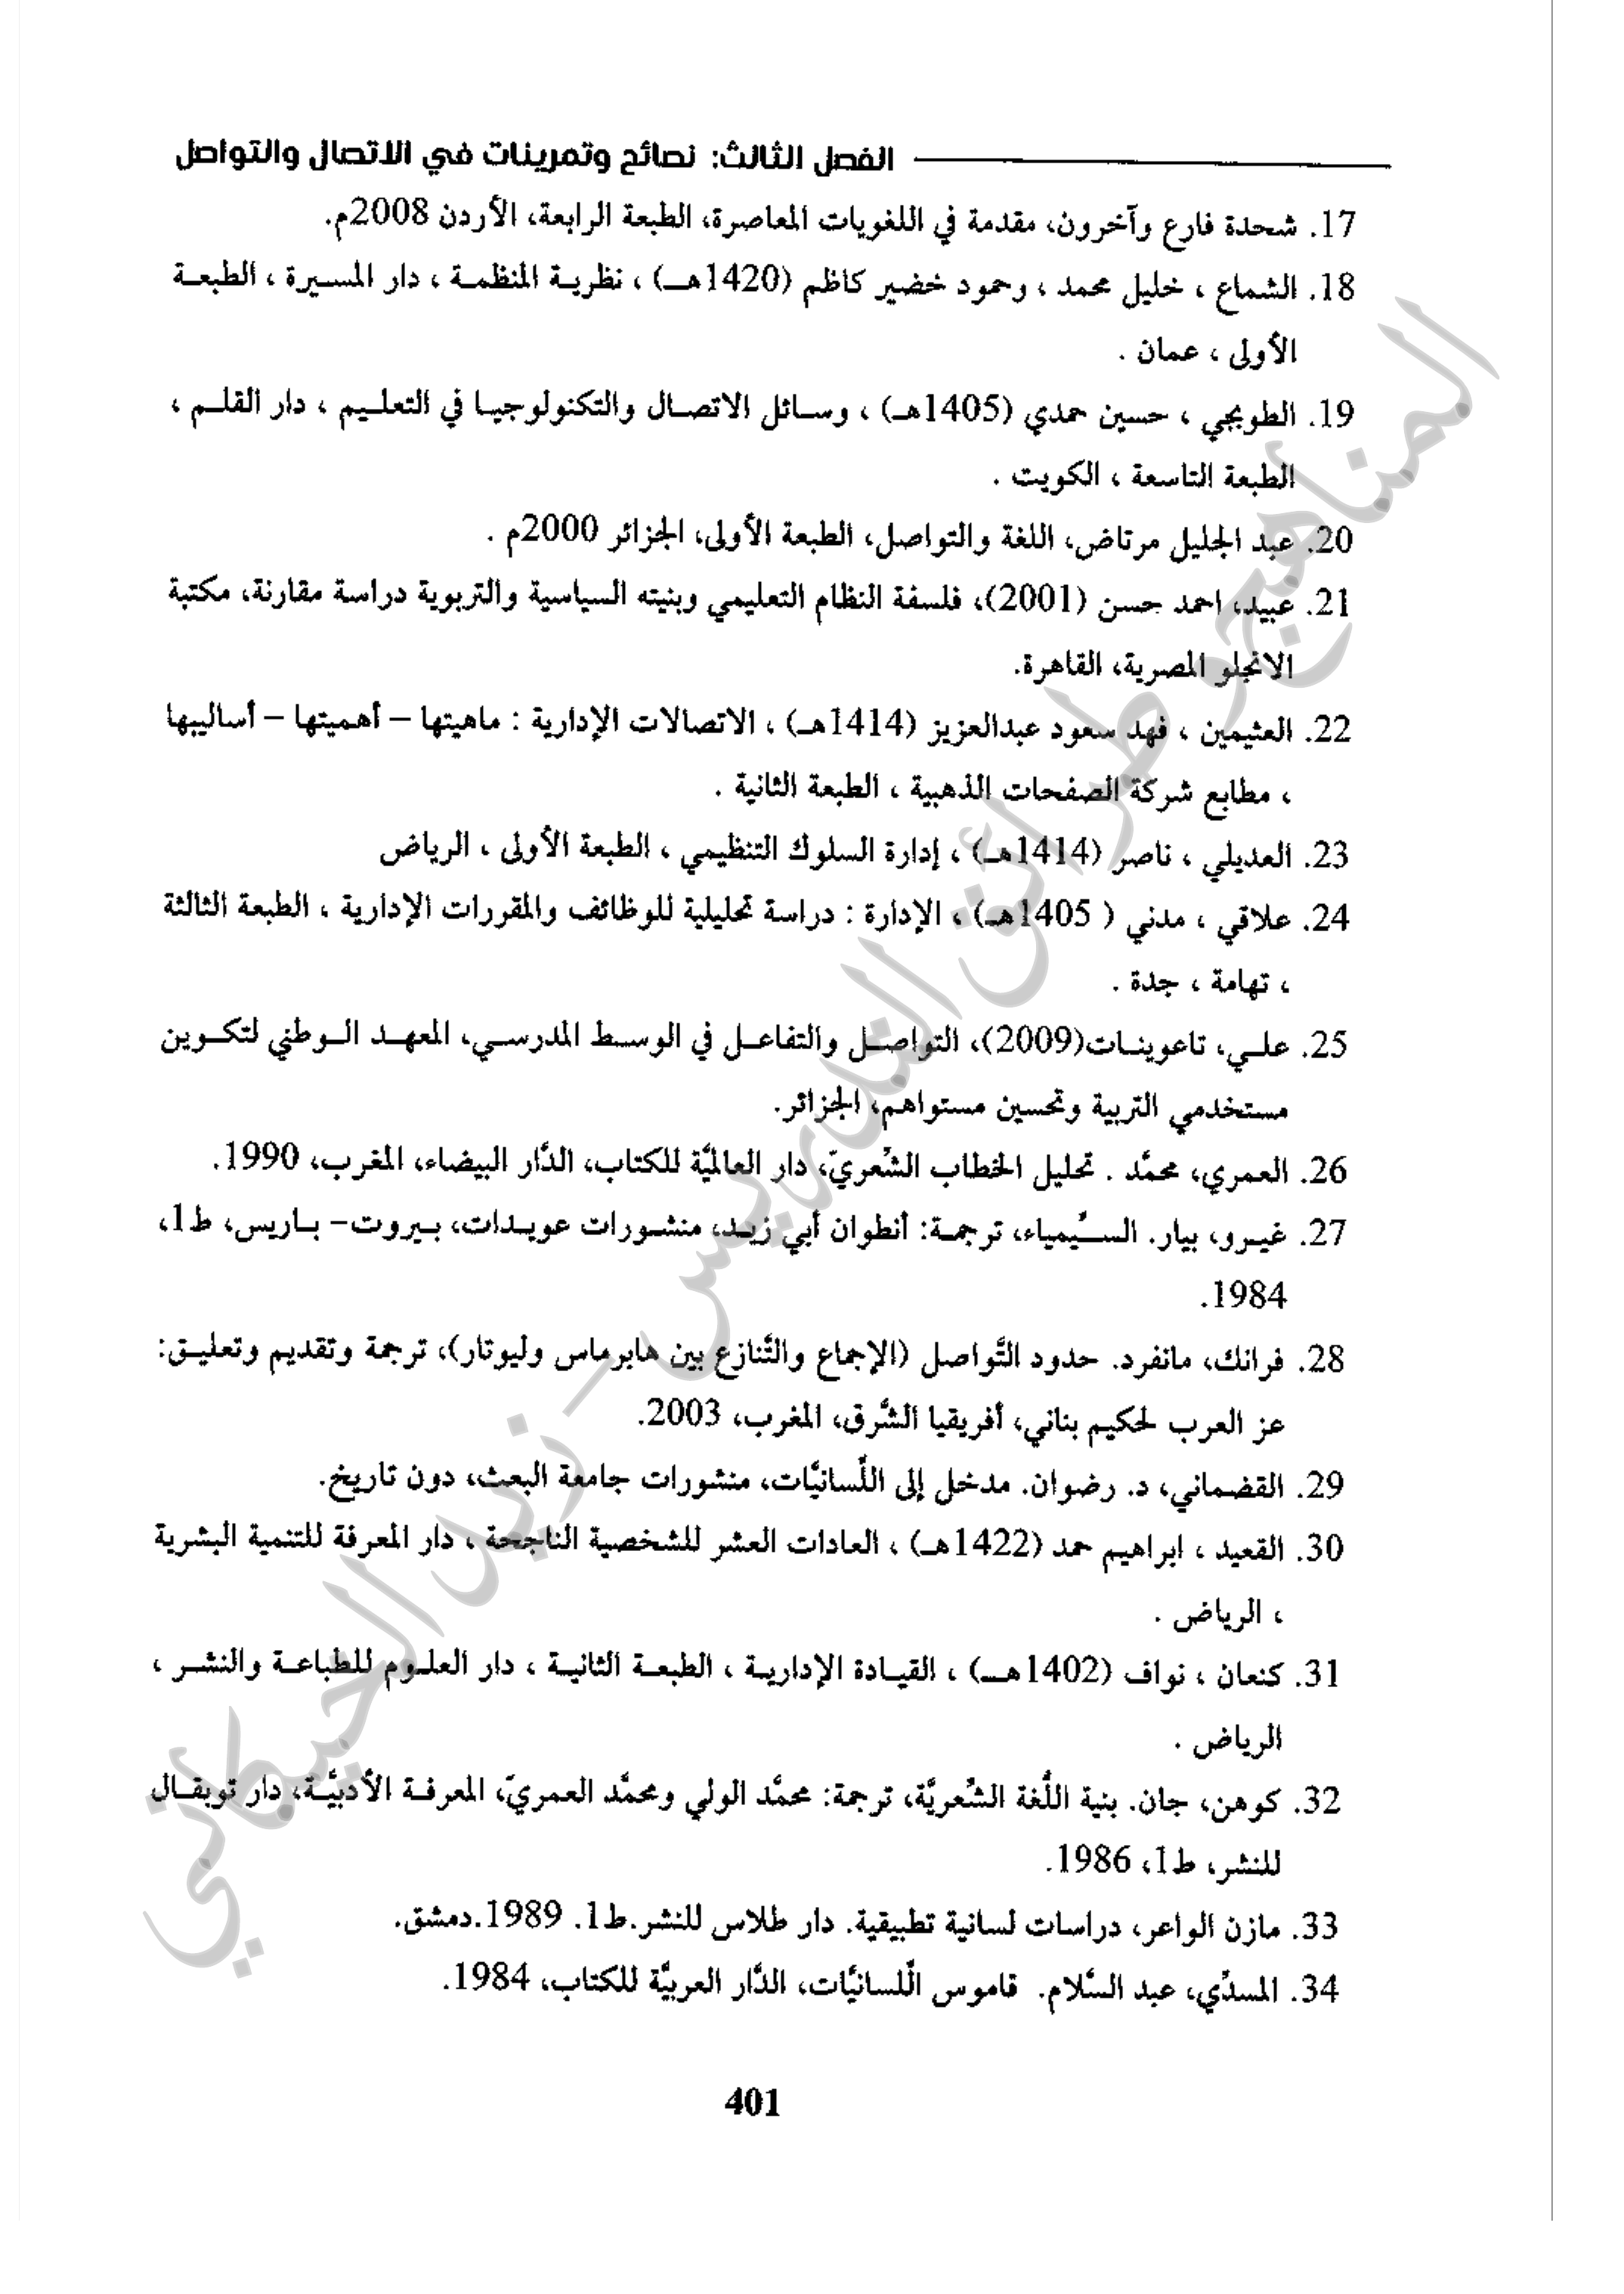 الفصل الثالث: نصائح وتمرينات في الاتصال والتواصل
17. شحدة فارع وآخرون، مقدمة في اللغويات المعاصرة، الطبعة الرابعة، الأردن 2008م.
18. الشماع ، خليل محمد ، وحمود خضير كاظم (1420هـ) ، نظرية المنظمة ، دار المسيرة ، الطبعة
الأولى ، عمان .
19. الطوبجي ، حسين حمدي (1405هـ) ، وسائل الاتصال والتكنولوجيا في التعليم ، دار القلم ،
الطبعة التاسعة ، الكويت .
20. عبد الجليل مرتاض، اللغة والتواصل، الطبعة الأولى، الجزائر 2000م .
21. عبيد، احمد حسن (2001)، فلسفة النظام التعليمي وبنيته السياسية والتربوية دراسة مقارنة، مكتبة
الانجلو المصرية، القاهرة.
22. العثيمين ، فهد سعود عبدالعزيز (1414هـ) ، الاتصالات الإدارية : ماهيتها – أهميتها – أساليبها
، مطابع شركة الصفحات الذهبية ، الطبعة الثانية .
23. العديلي ، ناصر (1414هـ) ، إدارة السلوك التنظيمي ، الطبعة الأولى ، الرياض
24. علاقي ، مدني ( 1405هـ) ، الإدارة : دراسة تحليلية للوظائف والمقررات الإدارية ، الطبعة الثالثة
، تهامة ، جدة .
25. علي، تاعوينات(2009)، التواصل والتفاعل في الوسط المدرسي، المعهد الوطني لتكوين
مستخدمي التربية وتحسين مستواهم، الجزائر.
26. العمري، محمَّد . تحليل الخطاب الشِّعريّ، دار العالميَّة للكتاب، الدَّار البيضاء، المغرب، 1990.
27. غيرو، بيار. السِّيمياء، ترجمة: أنطوان أبي زيد، منشورات عويدات، بيروت– باريس، ط1،
1984.
28. فرانك، مانفرد. حدود التَّواصل (الإجماع والتَّنازع بين هابرماس وليوتار)، ترجمة وتقديم وتعليق:
عز العرب لحكيم بناني، أفريقيا الشَّرق، المغرب، 2003.
29. القضماني، د. رضوان. مدخل إلى اللِّسانيَّات، منشورات جامعة البعث، دون تاريخ.
30. القعيد ، ابراهيم حمد (1422هـ) ، العادات العشر للشخصية الناجحة ، دار المعرفة للتنمية البشرية
، الرياض .
31. كنعان ، نواف (1402هـ) ، القيادة الإدارية ، الطبعة الثانية ، دار العلوم للطباعة والنشر ،
الرياض .
32. كوهن، جان. بنية اللُّغة الشِّعريَّة، ترجمة: محمَّد الولي ومحمَّد العمريّ، المعرفة الأدبيَّة، دار توبقال
للنشر، ط1، 1986.
33. مازن الواعر، دراسات لسانية تطبيقية. دار طلاس للنشر.ط1. 1989.دمشق.
34. المسدِّي، عبد السَّلام. قاموس الِّلسانيَّات، الدَّار العربيَّة للكتاب، 1984.
401
المناهج وطرائق التدريس - زيد الخيكاني